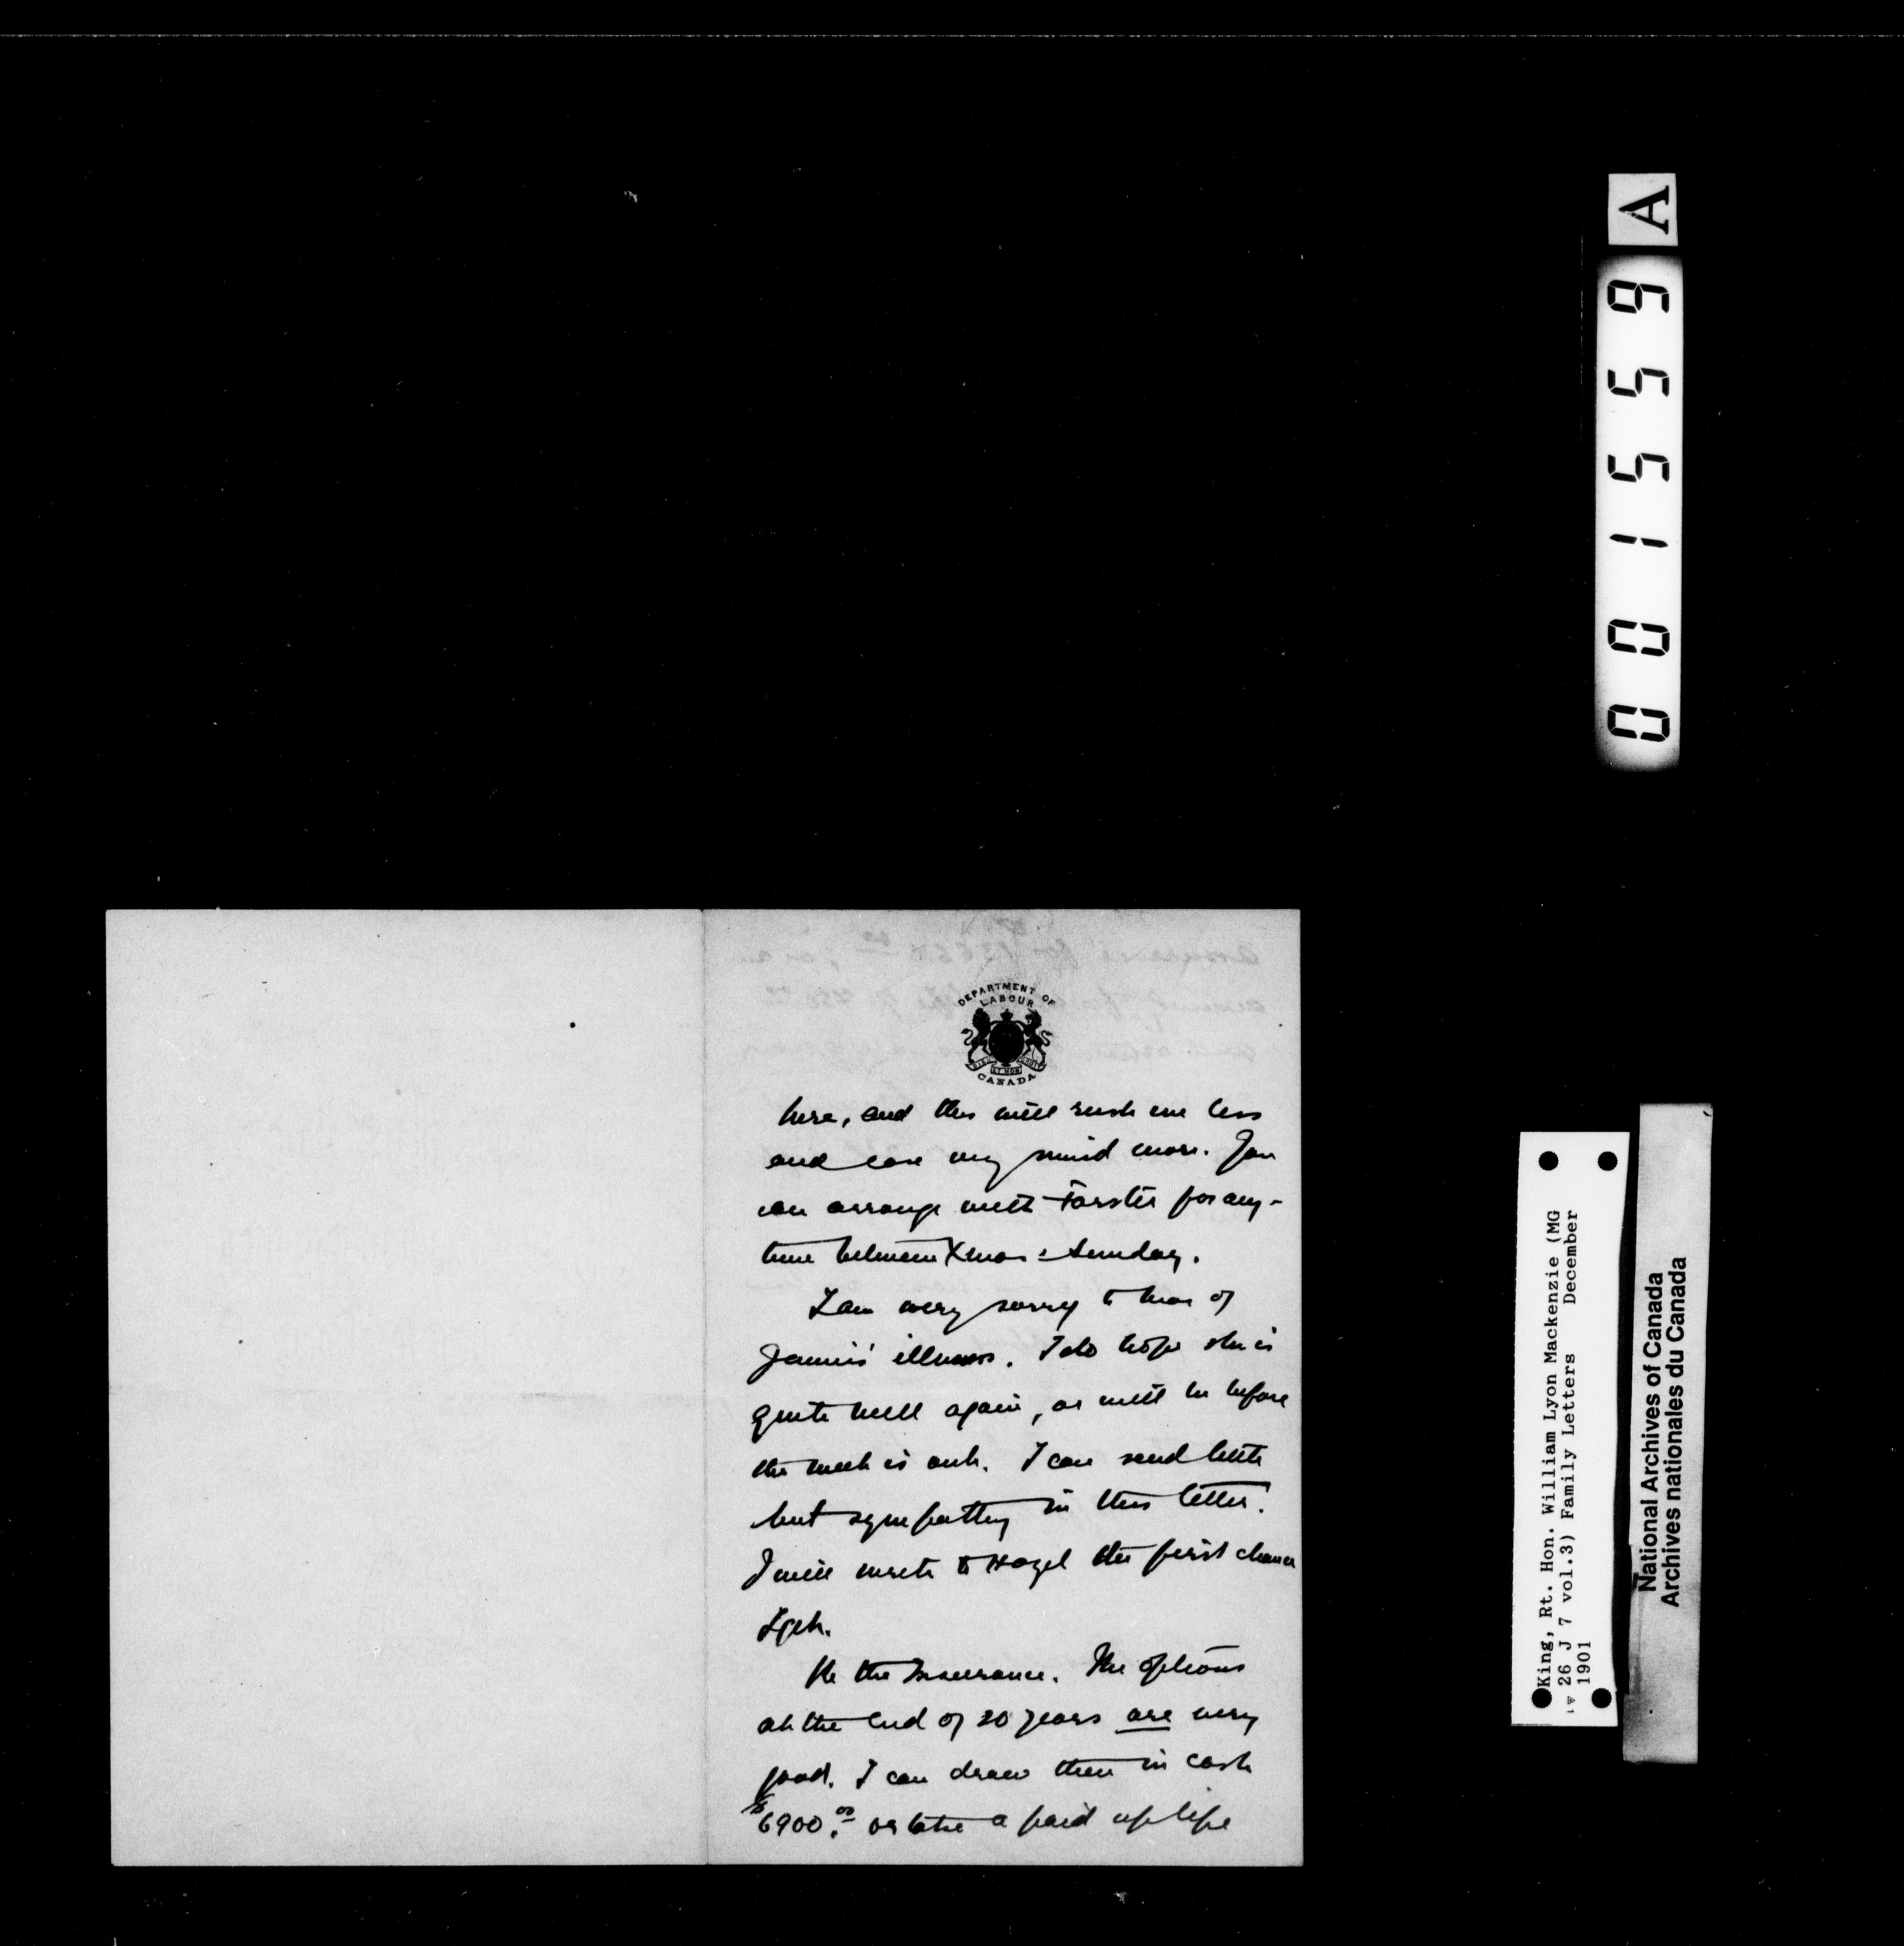 DEPARTMENT OF
LABOUR
CANADA
here, and this will rush me less
and ease my mind more. You
can arrange with Forster for any-
time between Xmas & Sunday.
I am very sorry to hear of
Jennie's illness. I do hope she is
quite well again, or will be before
the week is out. I can send little
but sympathy in this letter.
I will write to Hazel the first chance
I get.
Re the Insurance. The options
at the end of 20 years are very
good. I can draw then in cash
$6900.00 or take a paid up life
A
001559
King, Rt. Hon. William Lyon Mackenzie (MG
26 J 7 vol.3) Family Letters December
1901
National Archives of Canada
Archives nationales du Canada